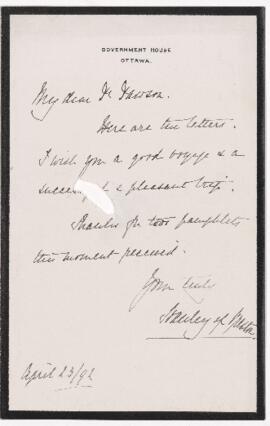 GOVERNMENT HOUSE
OTTAWA.
My dear Dr Dawson.
Here are the letters.
I wish you a good voyage & a
success & a pleasant trip.
Thanks for two pamphlets
this moment received.
Yours truly
Stanley of Preston
April 23/92